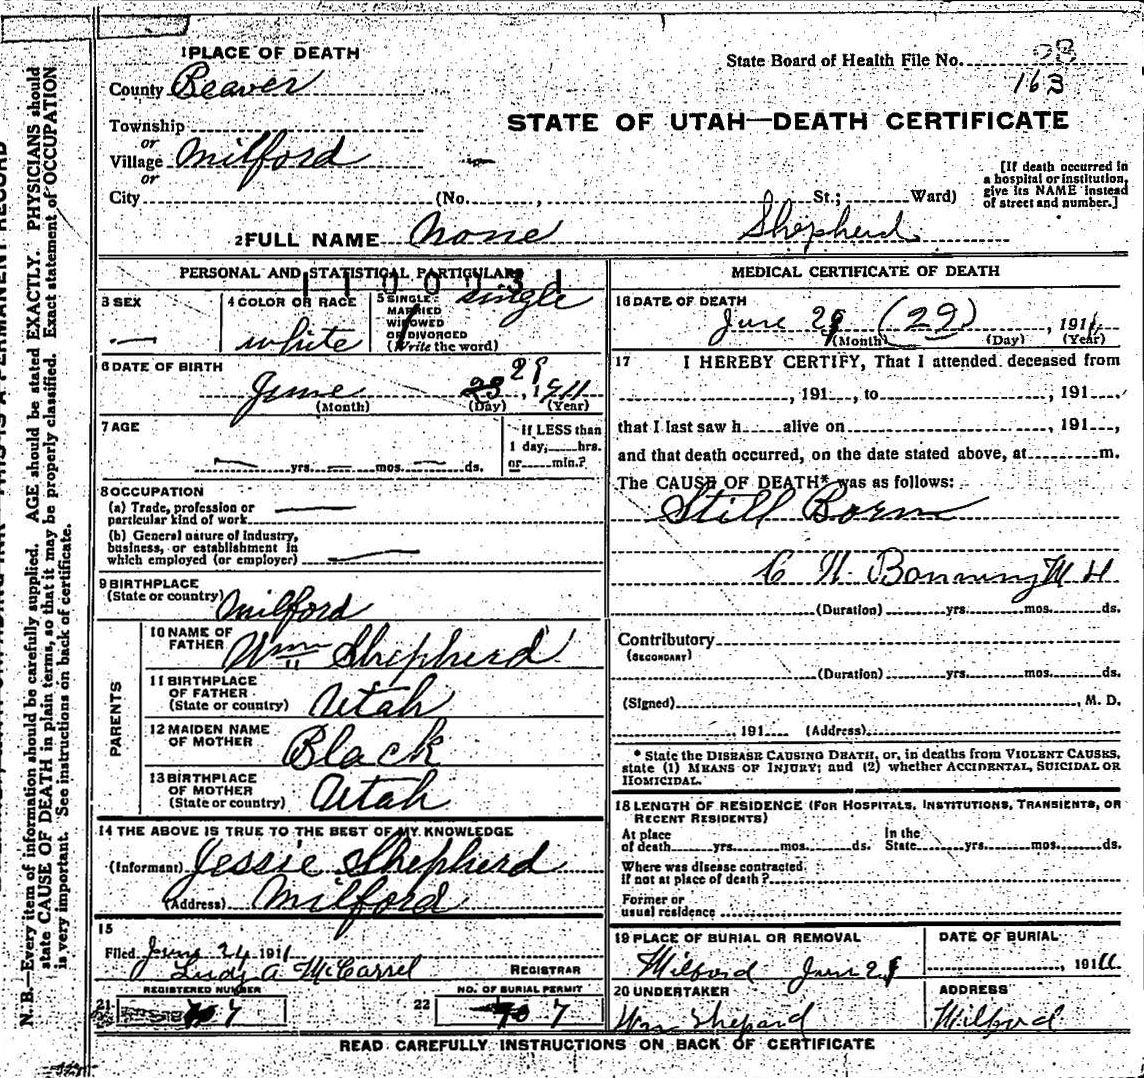 1 PLACE OF DEATH
County Beaver
Township
or
Village Milford
or
City (No. , St.; Ward)
State Board of Health File No.
163
STATE OF UTAH—DEATH CERTIFICATE
[If death occurred in
a hospital or institution,
give its NAME instead
of street and number.]
2 FULL NAME None Shepherd
PERSONAL AND STATISTICAL PARTICULARS
3 SEX —
4 COLOR OR RACE
white
5 SINGLE single
MARRIED
WIDOWED
OR DIVORCED
(Write the word)
6 DATE OF BIRTH
June 1911
(Month) (Day) (Year)
7 AGE
— yrs. — mos. — ds.
If LESS than
1 day, hrs.
or min.?
8 OCCUPATION
(a) Trade, profession or
particular kind of work —
(b) General nature of industry,
business, or establishment in
which employed (or employer) —
9 BIRTHPLACE
(State or country) Milford
PARENTS
10 NAME OF
FATHER Wm Shepherd
11 BIRTHPLACE
OF FATHER
(State or country) Utah
12 MAIDEN NAME
OF MOTHER Black
13 BIRTHPLACE
OF MOTHER
(State or country) Utah
14 THE ABOVE IS TRUE TO THE BEST OF MY KNOWLEDGE
(Informant) Jessie Shepherd
(Address) Milford
15
Filed June 1911
A McCarrel REGISTRAR
REGISTERED NUMBER
21 7
NO. OF BURIAL PERMIT
22 7
MEDICAL CERTIFICATE OF DEATH
16 DATE OF DEATH
June 29 (29) , 1911
(Month) (Day) (Year)
17 I HEREBY CERTIFY, That I attended deceased from
, 191 , to , 191 ,
that I last saw h alive on , 191 ,
and that death occurred, on the date stated above, at m.
The CAUSE OF DEATH* was as follows:
Still Born
(Duration) yrs. mos. ds.
Contributory
(SECONDARY)
(Duration) yrs. mos. ds.
(Signed) , M. D.
, 191 (Address)
* State the DISEASE CAUSING DEATH, or, in deaths from VIOLENT CAUSES,
state (1) MEANS OF INJURY; and (2) whether ACCIDENTAL, SUICIDAL OR
HOMICIDAL.
18 LENGTH OF RESIDENCE (FOR HOSPITALS, INSTITUTIONS, TRANSIENTS, OR
RECENT RESIDENTS)
At place
of death yrs. mos. ds.
In the
State yrs. mos. ds.
Where was disease contracted,
if not at place of death?
Former or
usual residence
19 PLACE OF BURIAL OR REMOVAL
Milford June
DATE OF BURIAL
, 1911
20 UNDERTAKER
Wm Shepard
ADDRESS
Milford
READ CAREFULLY INSTRUCTIONS ON BACK OF CERTIFICATE
N. B.—Every item of information should be carefully supplied. AGE should be stated EXACTLY. PHYSICIANS should
state CAUSE OF DEATH in plain terms, so that it may be properly classified. Exact statement of OCCUPATION
is very important. See instructions on back of certificate.